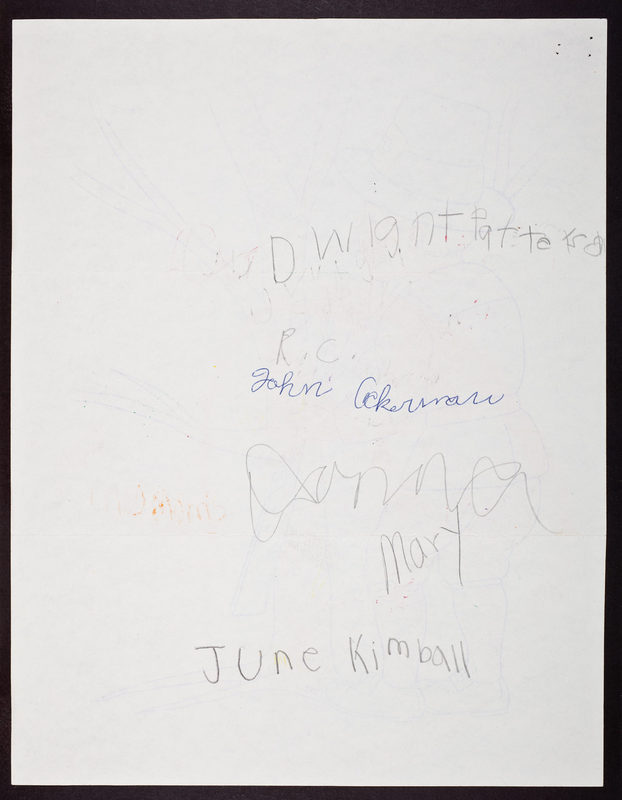 Dwight Patterso
R.C.
John Ackerman
Donna
Mary
June Kimball